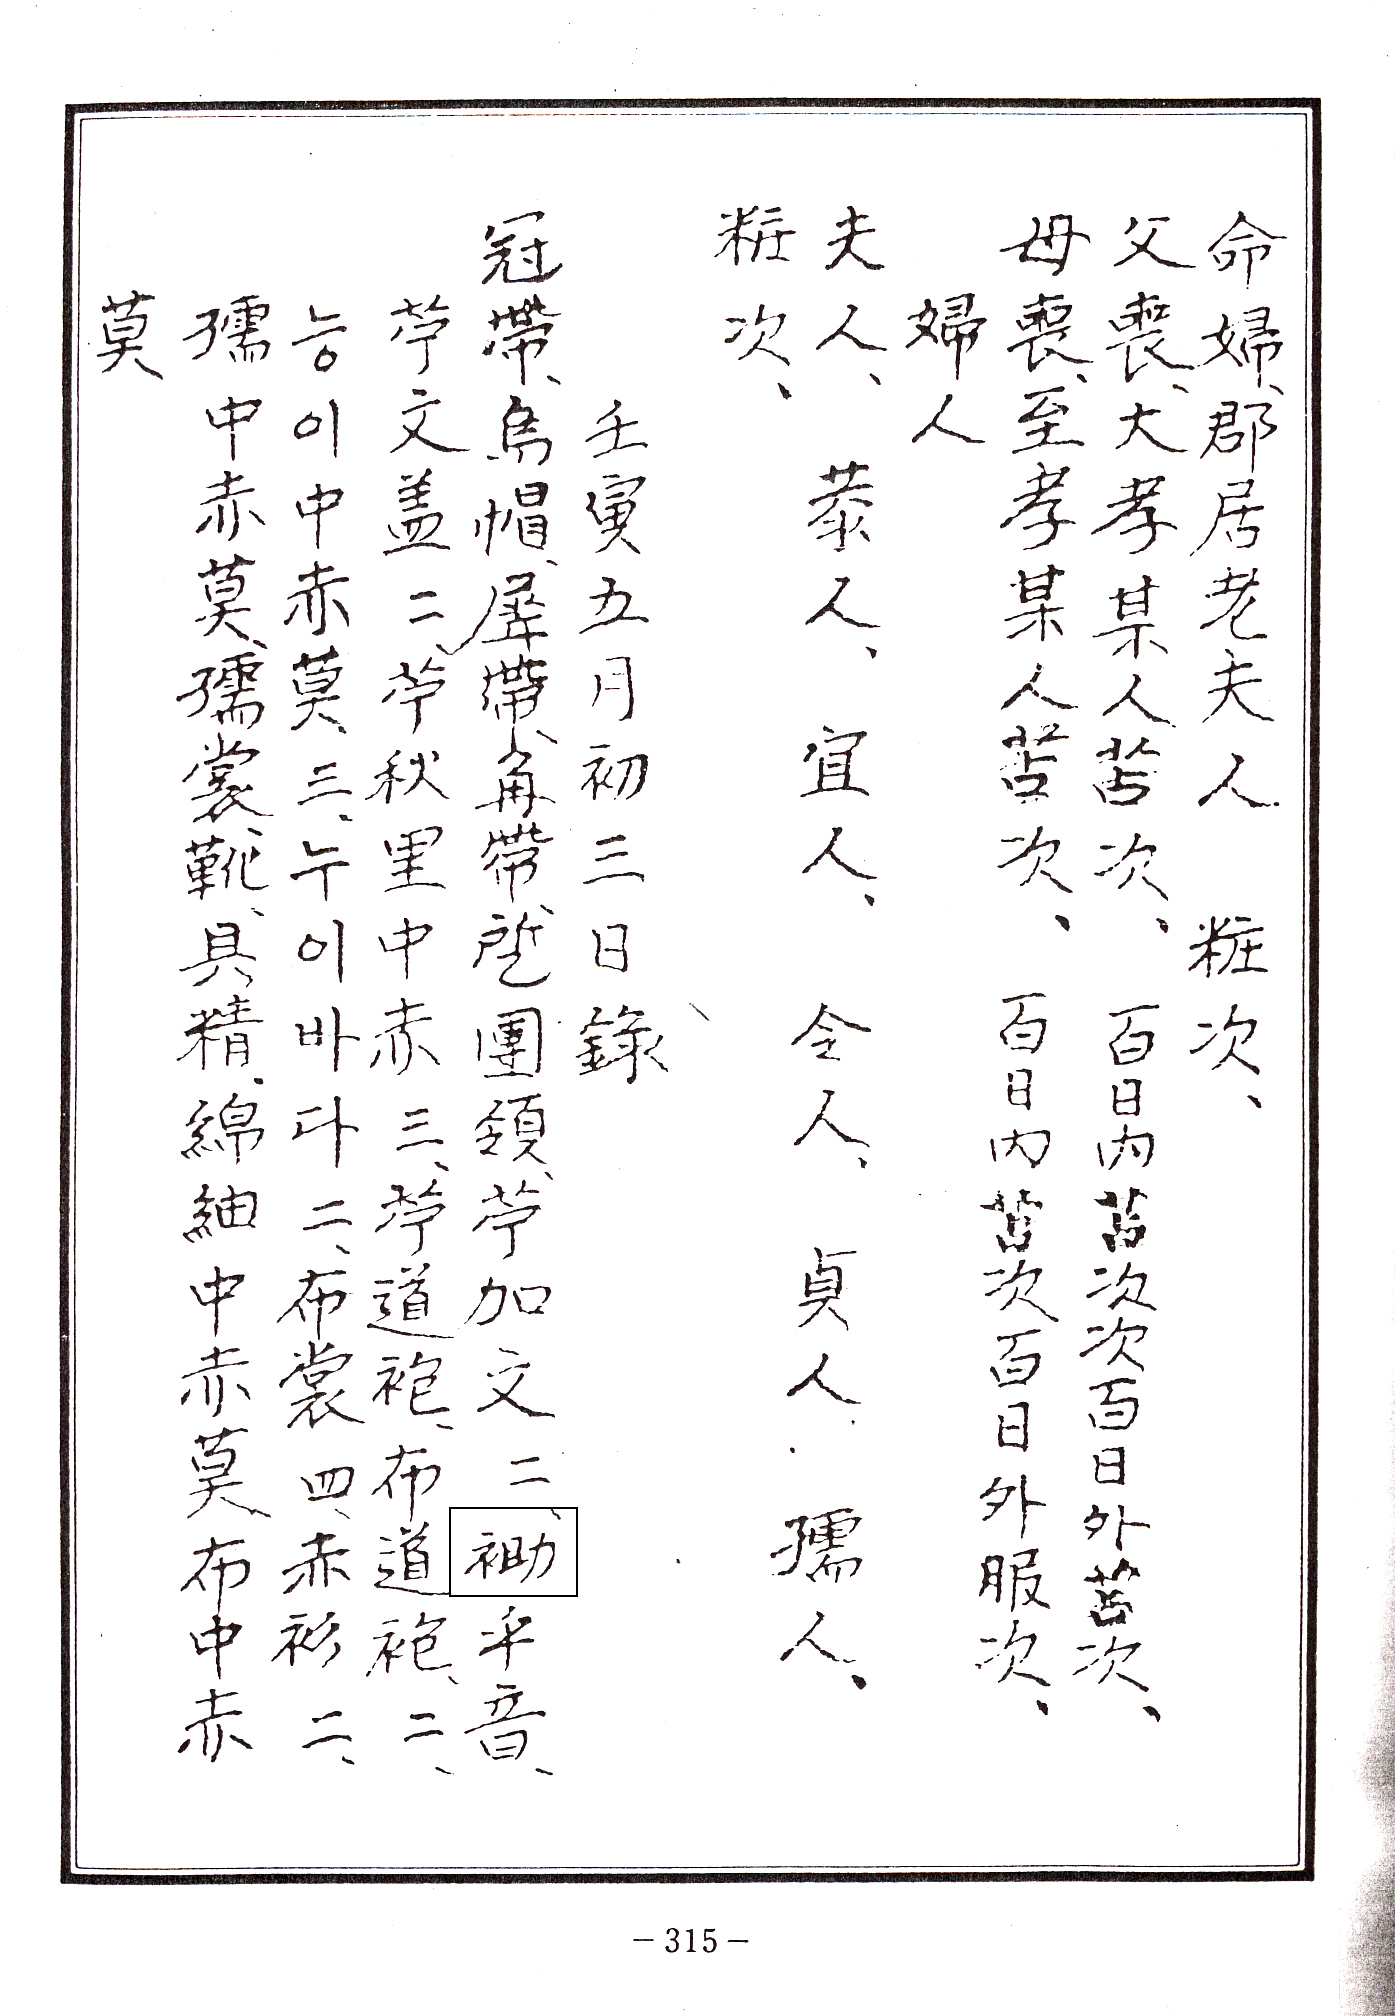 命婦、郡居老夫人 粧次、
父喪、大孝某人苫次、 百日內苫次次百日外苫次、
母喪、至孝某人苫次、 百日內苫次百日外服次、
婦人
夫人、 恭人、 宜人、 令人、 貞人 孺人、
粧次、
壬寅五月初三日錄
冠帶、烏帽、犀帶、角帶、團領、苧加文二、耡乎音、
苧文盖二、苧秋里中赤三、苧道袍、布道袍、二、
능이中赤莫、三、누이바다二、布裳四、赤衫二、
孺中赤莫、孺裳、靴、具精、綿紬中赤莫布中赤
莫
- 315 -